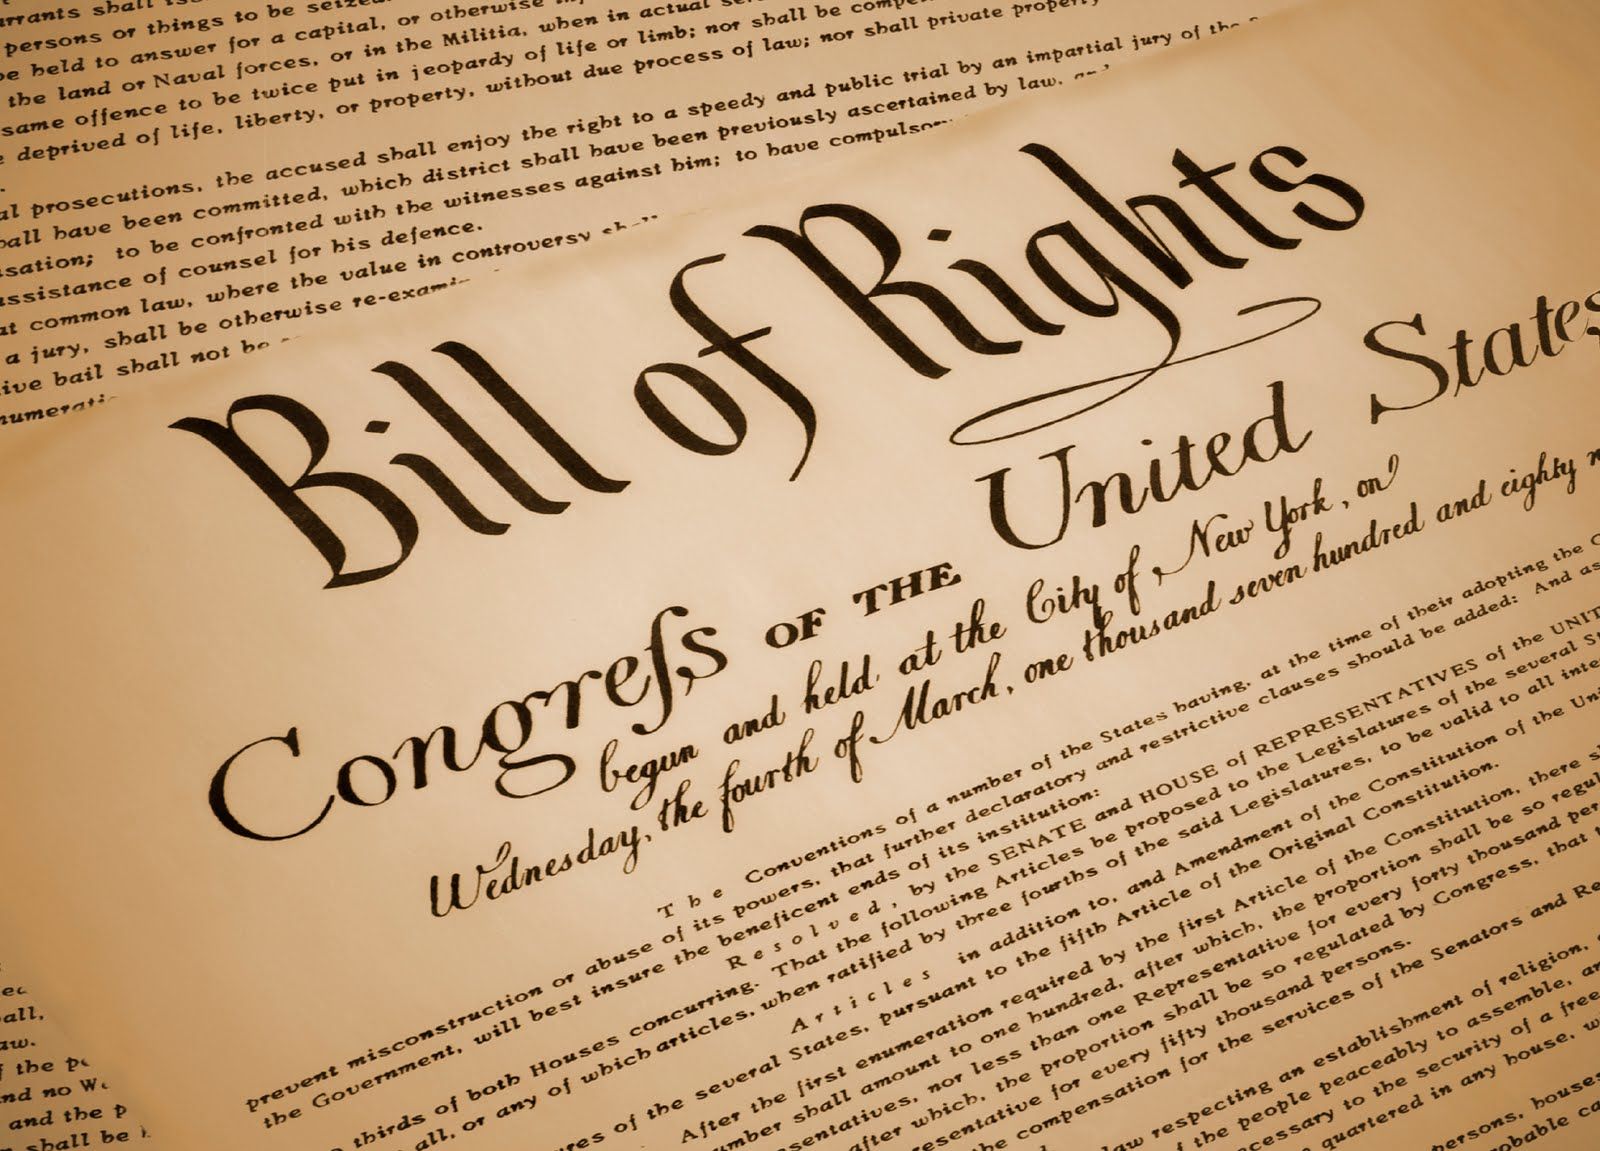 rrants shall iss
persons or things to be seized.
be held to answer for a capital, or otherwise
the land or Naval forces, or in the Militia, when in actual
same offence to be twice put in jeopardy of life or limb; nor shall be
deprived of life, liberty, or property, without due process of law; nor shall private property
al prosecutions, the accused shall enjoy the right to a speedy and public trial by an impartial jury of the
all have been committed, which district shall have been previously ascertained by law, and
sation; to be confronted with the witnesses against him; to have compulsory
assistance of counsel for his defence.
at common law, where the value in controversy shall
a jury, shall be otherwise re-exami
ive bail shall not be
numerati
Bill of Rights
Congreſs OF THE United States
begun and held at the City of New York, on
Wednesday, the fourth of March, one thousand seven hundred and eighty n
The Conventions of a number of the States having, at the time of their adopting the C
prevent misconstruction or abuse of its powers, that further declaratory and restrictive clauses should be added: And as
the Government, will best insure the beneficent ends of its institution:
Resolved, by the SENATE and HOUSE of REPRESENTATIVES of the UNIT
thirds of both Houses concurring. That the following Articles be proposed to the Legislatures of the several S
all, or any of which articles, when ratified by three fourths of the said Legislatures, to be valid to all inte
Articles in addition to, and Amendment of the Constitution of the Uni
res of the several States, pursuant to the fifth Article of the Original Constitution.
After the first enumeration required by the first Article of the Constitution, there s
mber shall amount to one hundred, after which, the proportion shall be so regul
sentatives, nor less than one Representative for every forty thousand per
after which, the proportion shall be so regulated by Congress, that
resentative for every fifty thousand persons.
the compensation for the services of the Senators and Re
law respecting an establishment of religion,
f the people peaceably to assemble, an
ecessary to the security of a free
quartered in any house, w
persons, houses
robable ca
all,
aw.
f the pe
nd no Wa
and the p
shall be